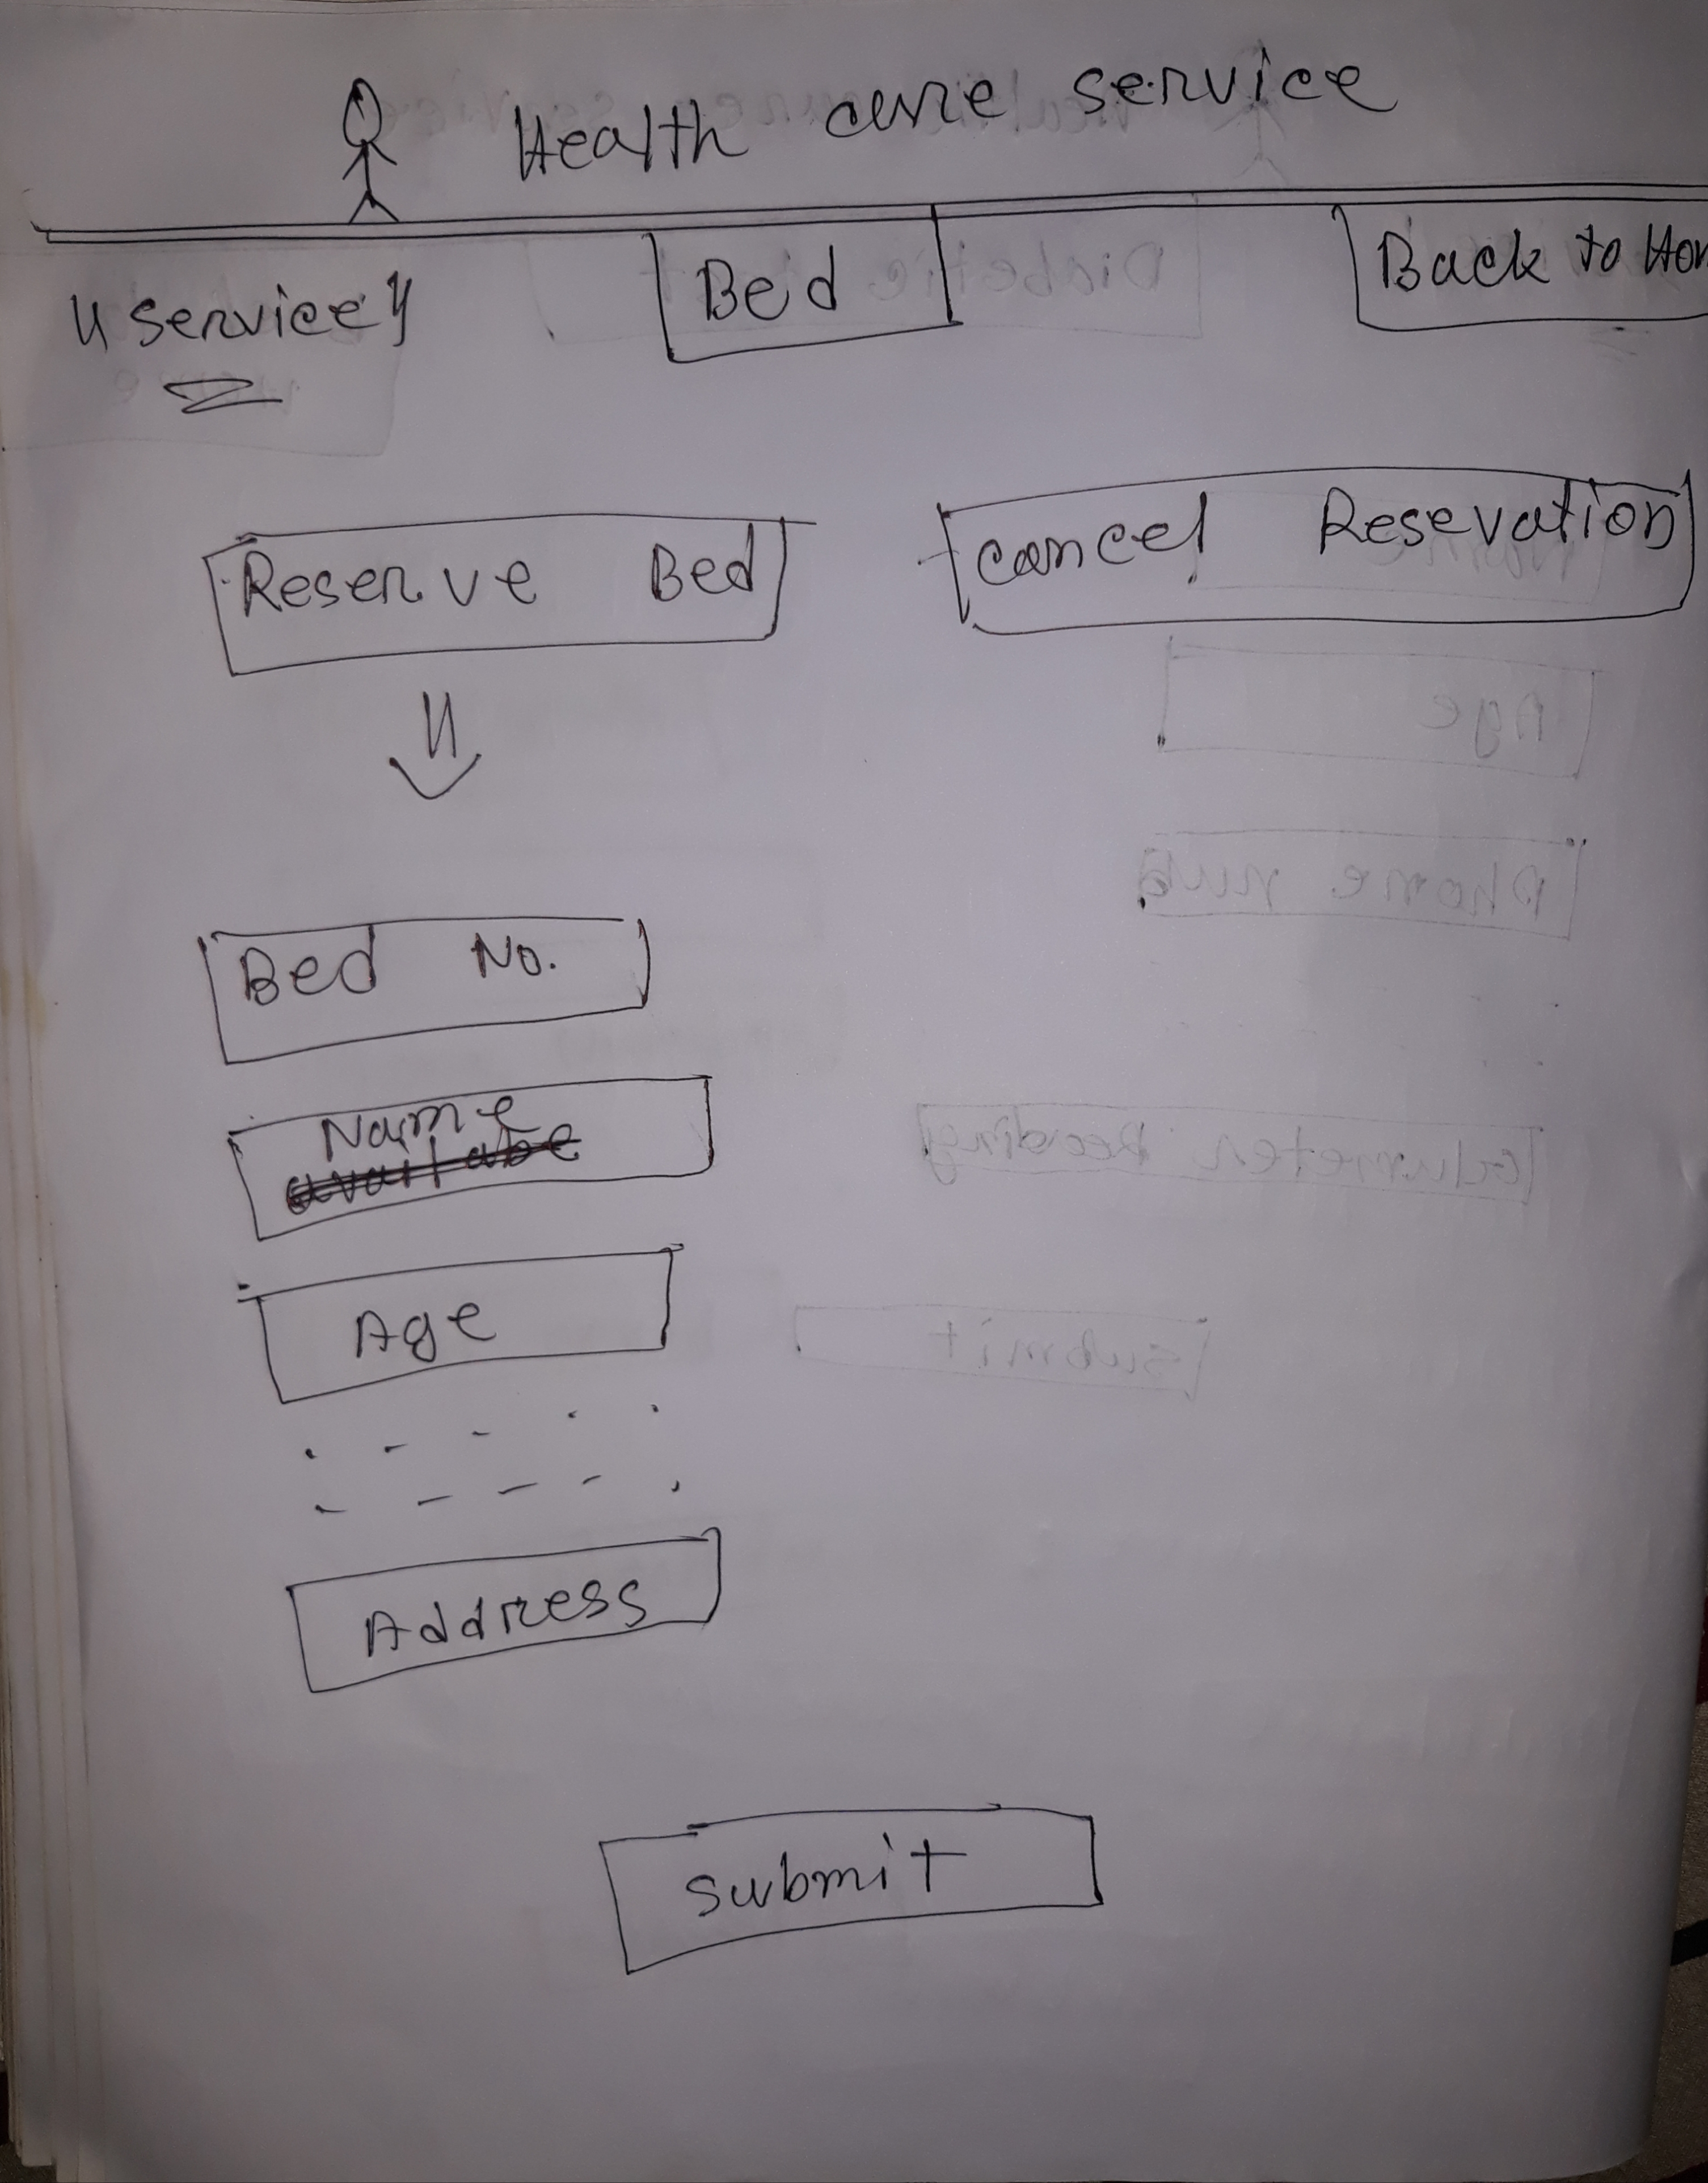 Health care service
"service" Bed Back to Hom
Reserve Bed cancel Resevation
Bed No.
Name
Age
Address
submit